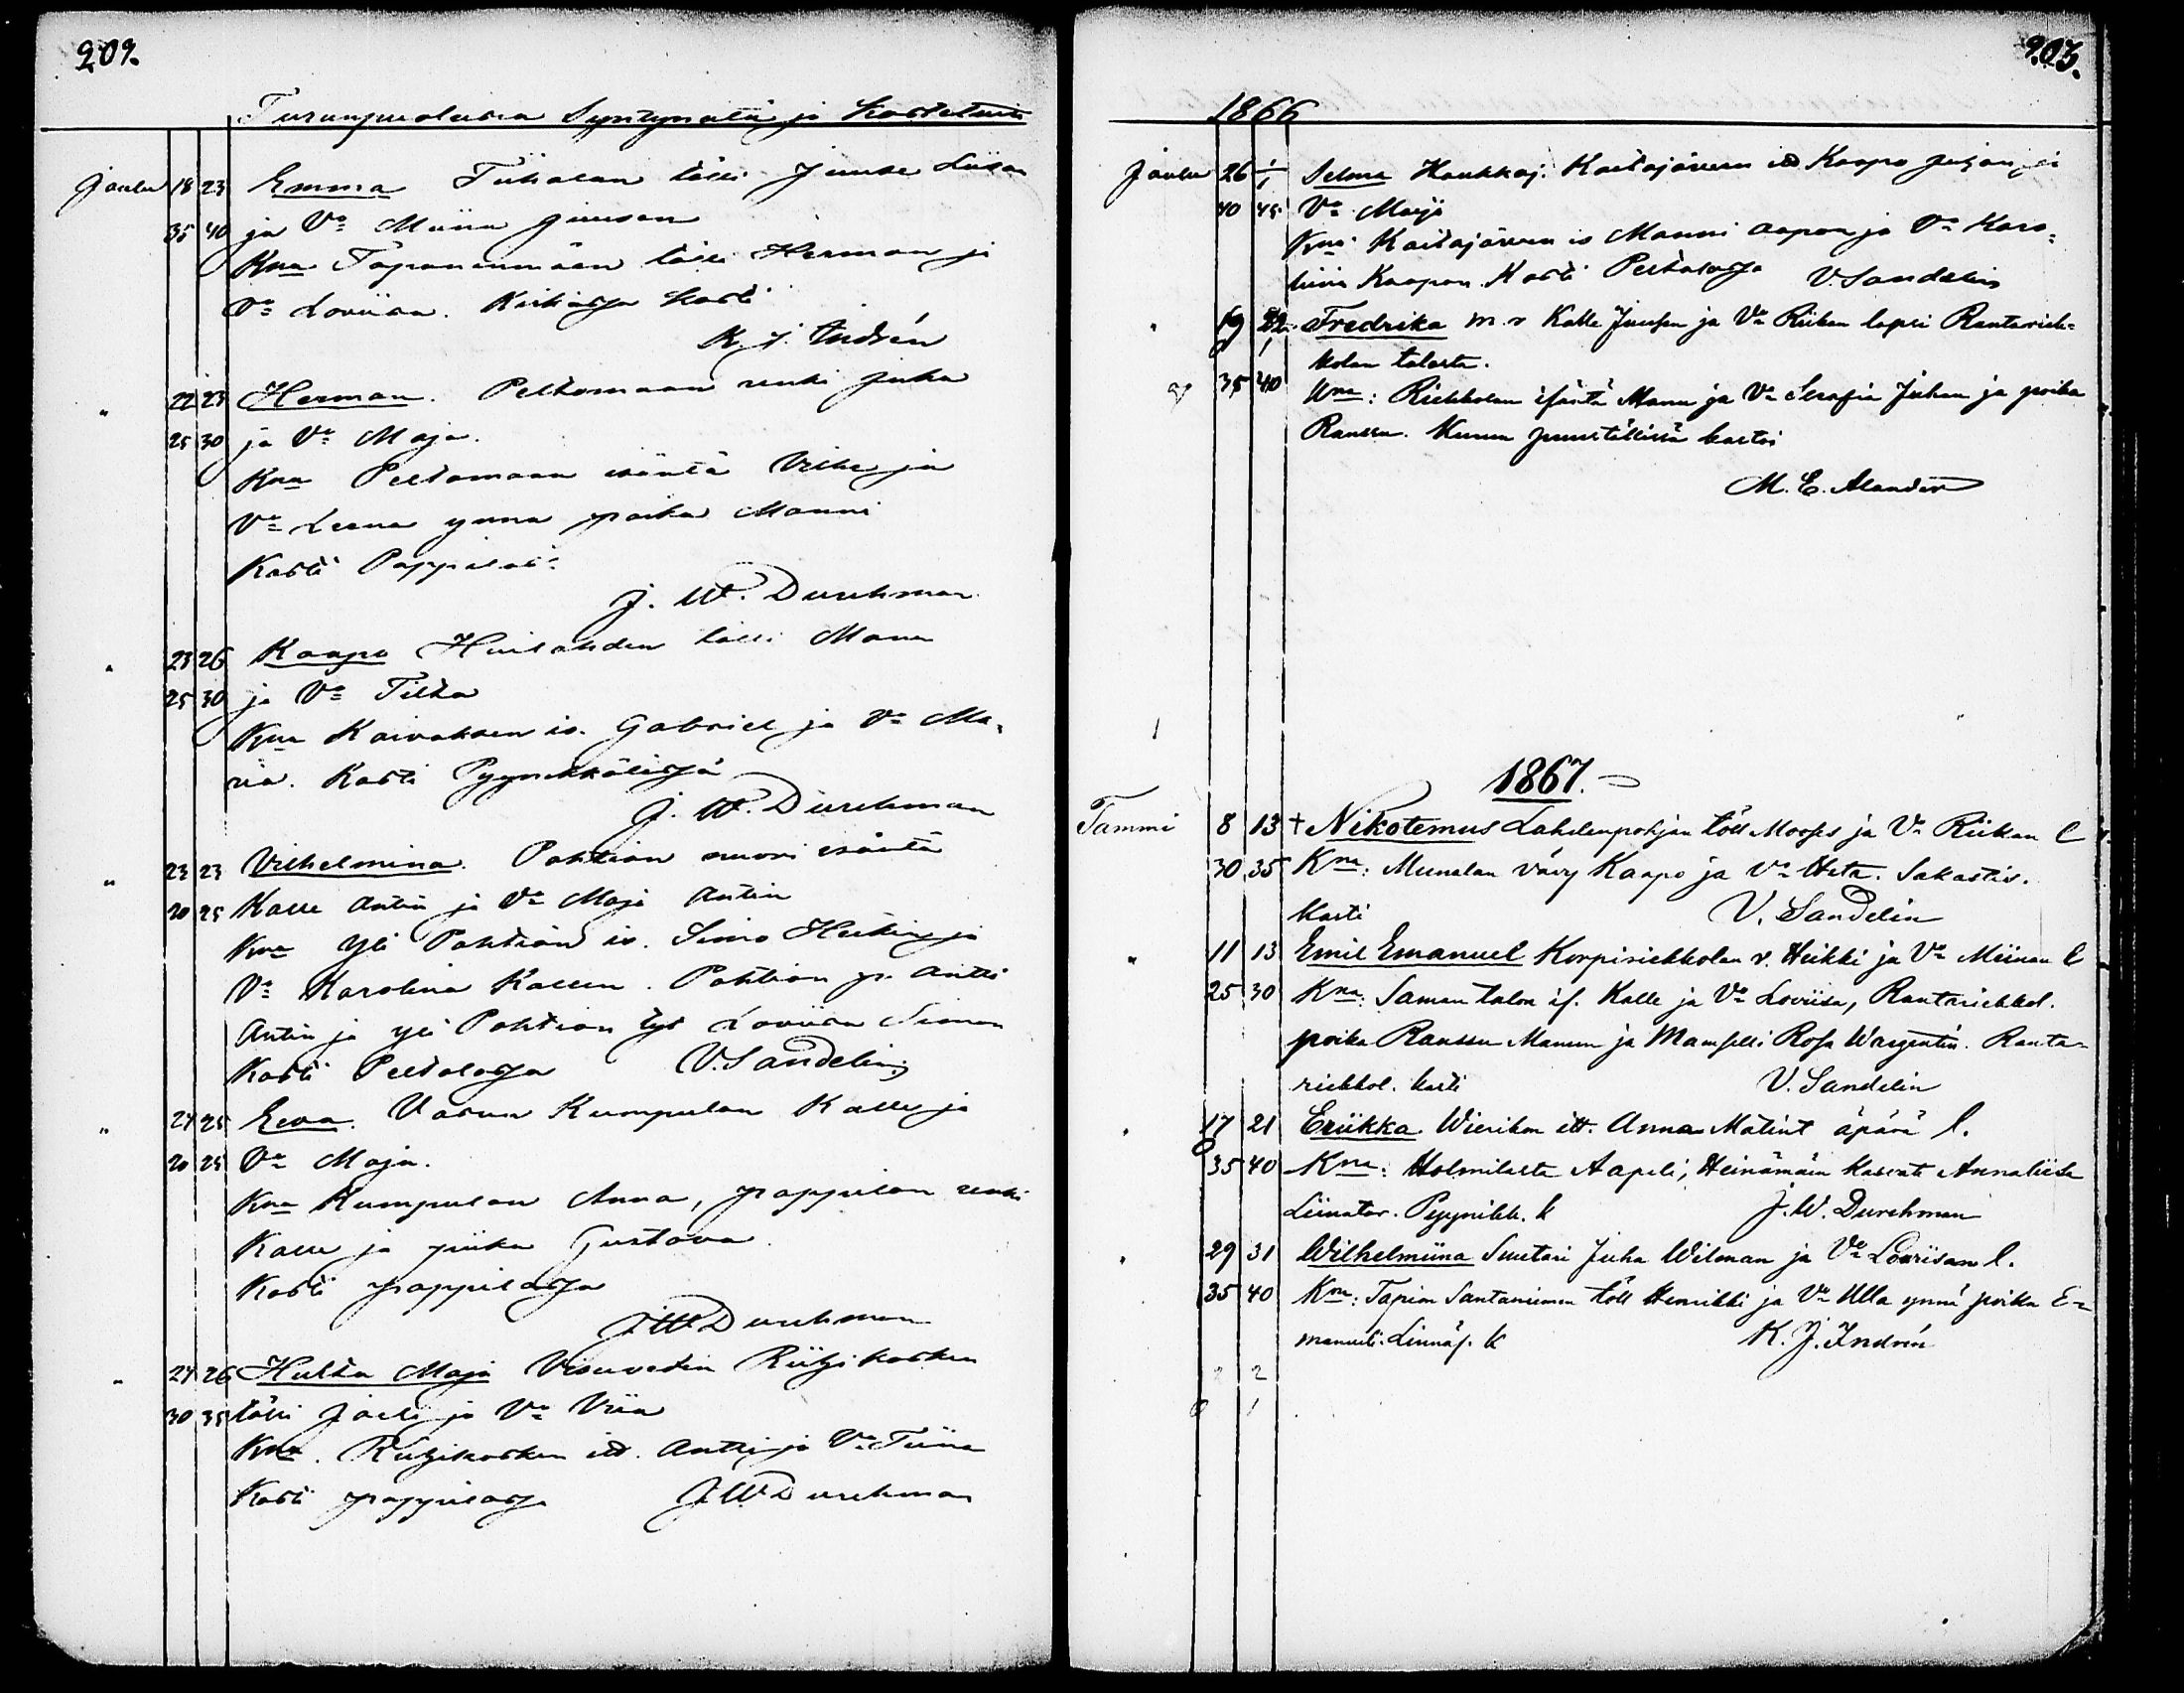 202.
Turunpuolessa Syntyneitä ja Kastetuita
Joulu 18 23 Emma Tiihalan tölli Juuse Liisan
35 40 ja Vo Miina Juusan
Kna Taponenmäen tölli Herman ja
Vo Loviisa. Kiikassa kasti
K. J. Indrén
" 22 23 Herman. Peltomaan renki Juha
25 30 ja Vo Maja.
Kna Peltomaan isäntä Vilhe ja
Vo Leena ynnä poika Manni
Kasti Pappilas:
J. W. Durchman
" 23 26 Kaapo Huilahden tölli Manu
25 30 ja Vo Tilta
Kna Kaivoksen is. Gabriel ja Vo Ma-
ria. Kasti Pyynikkälässä
J. W. Durchman
" 23 23 Vilhelmina. Pohtion nuori isäntä
20 25 Kalle Antin ja Vo Maja Antin
Kna Yli Pohtion is. Simo Heikin ja
Vo Karolina Kallen. Pohtion p. Antti
Antin ja yli Pohtion tyt Loviisa Simon
Kasti Peltolassa V. Sandelin
" 24 25 Eeva. Vasun Kumpulan Kalle ja
20 25 Vo Maja.
Kna Kumpulan Anna, pappilan renki
Kalle ja piika Gustava.
Kasti pappilassa
J W Durchman
" 24 26 Hulta Maja Visuvedin Riitzikosken
30 35 tölli Joeli ja Vo Viia
Kna. Riitzikosken itt. Antti ja Vo Tiina
Kasti pappilassa J W Durchman
203.
1866
Joulu 26 1/1 Selma Haukkaj. Kaitajärven itt Kaapo Juhan ja
40 45 Vo Maja
Kna Kaitajärven is Manni Aapon ja Vo Karo-
liina Kaapon. Kasti Peltolassa V. Sandelin
" 19 22 Fredrika m. r Kalle Juusen ja Vo Riikan lapsi Rantariek-
kolan talosta.
35 40 Kna: Riekkolan isäntä Manu ja Vo Serafia Juhan ja poika
Ranssu. Kunun puuställissä kastoi
M. E. Alander
1867.
Tammi 8 13 + Nikotemus Lahdenpohjan töll Mooses ja Vo Riikan l
30 35 Kna: Munalan vävy Kaapo ja Vo Heta. Sakastis.
kasti V. Sandelin
" 11 13 Emil Emanuel Korpiriekkolan v. Heikki ja Vo Miinan l
25 30 Kna: Saman talon is. Kalle ja Vo Loviisa, Rantariekkol.
poika Ranssu Manun ja Mamselli Rosa Wargentin. Ranta-
riekkol. kasti V. Sandelin
" 17 21 Eriikka Wierikon itt. Anna Mátint äpärä l.
35 40 Kna: Holmilasta Aapeli, Heinämäen kasvati Annaliisa
Liinatar. Pyynikk. k J. W. Durchman
" 29 31 Wilhelmiina Suutari Juha Wilman ja Vo Loviisan l.
35 40 Kna: Tapion Santaniemen töll Henrikki ja Vo Ulla ynnä poika E-
manueli. Linnás. k K. J. Indrén
2 2